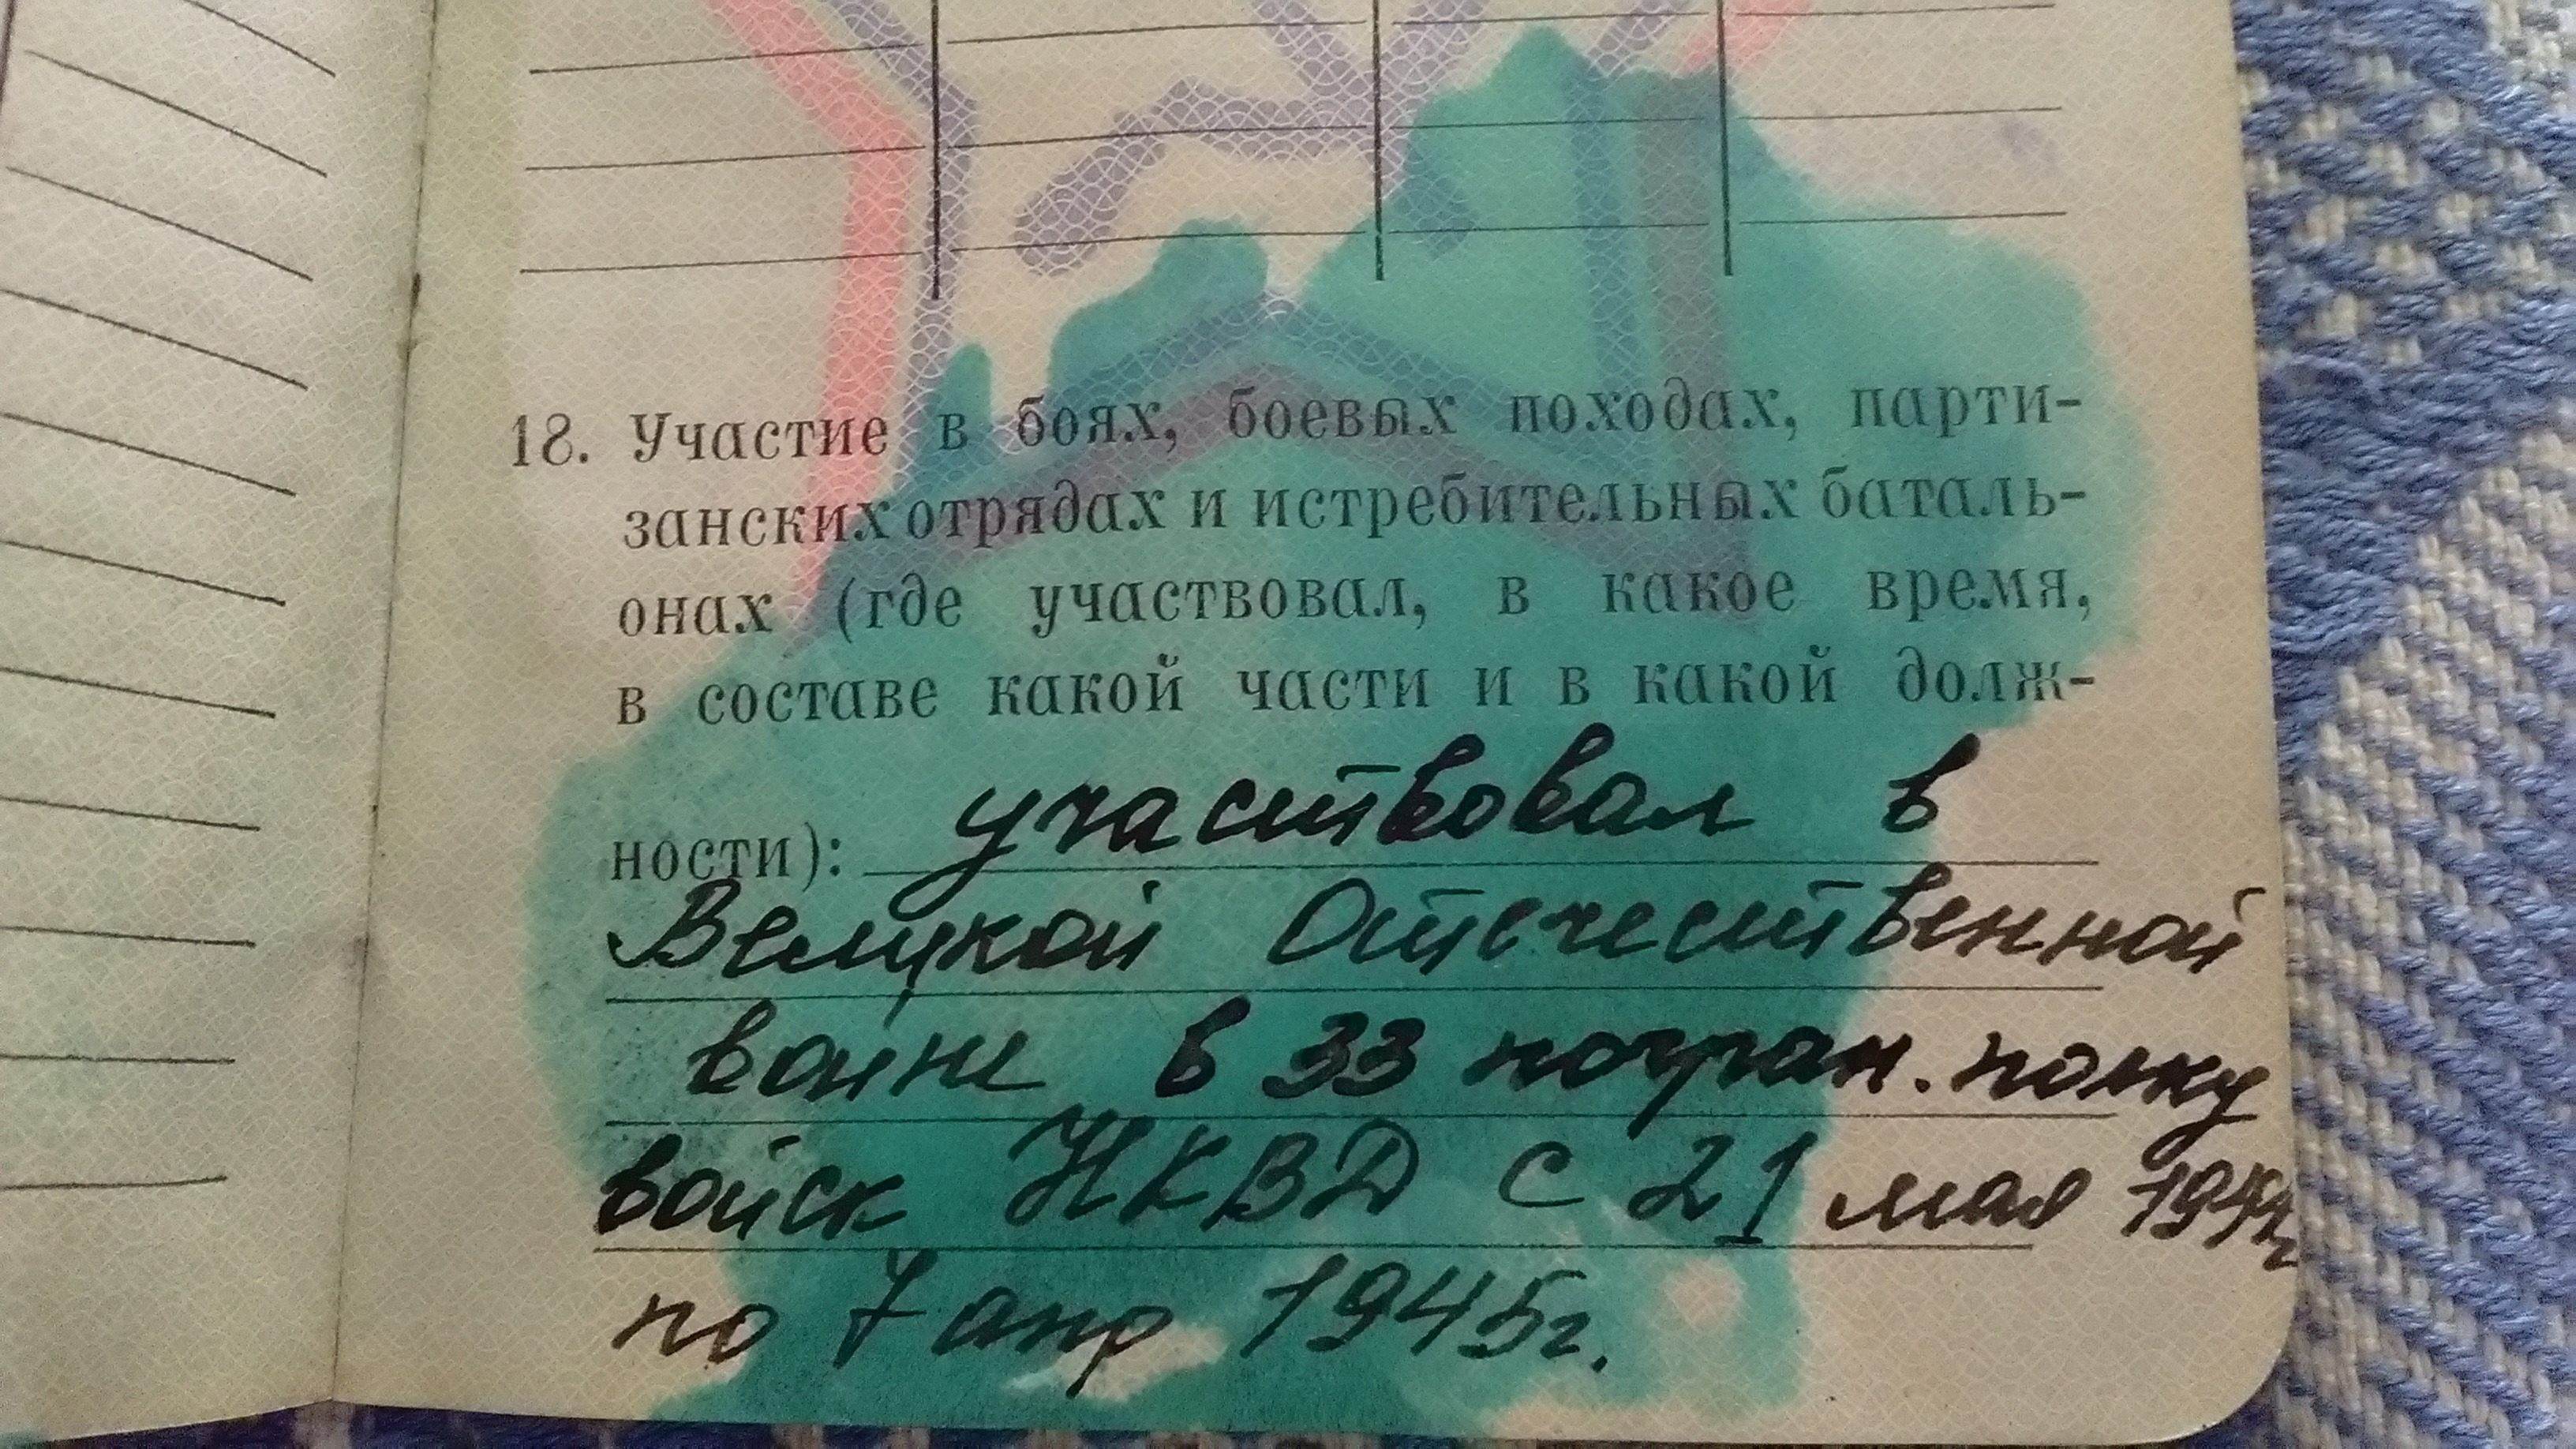 18. Участие в боях, боевых походах, парти-
занских отрядах и истребительных баталь-
онах (где участвовал, в какое время,
в составе какой части и в какой долж-
ности): участвовал в
Великой Отечественной
войне в 33 погран. полку
войск НКВД с 21 мая 1944г
по 7 апр 1945г.